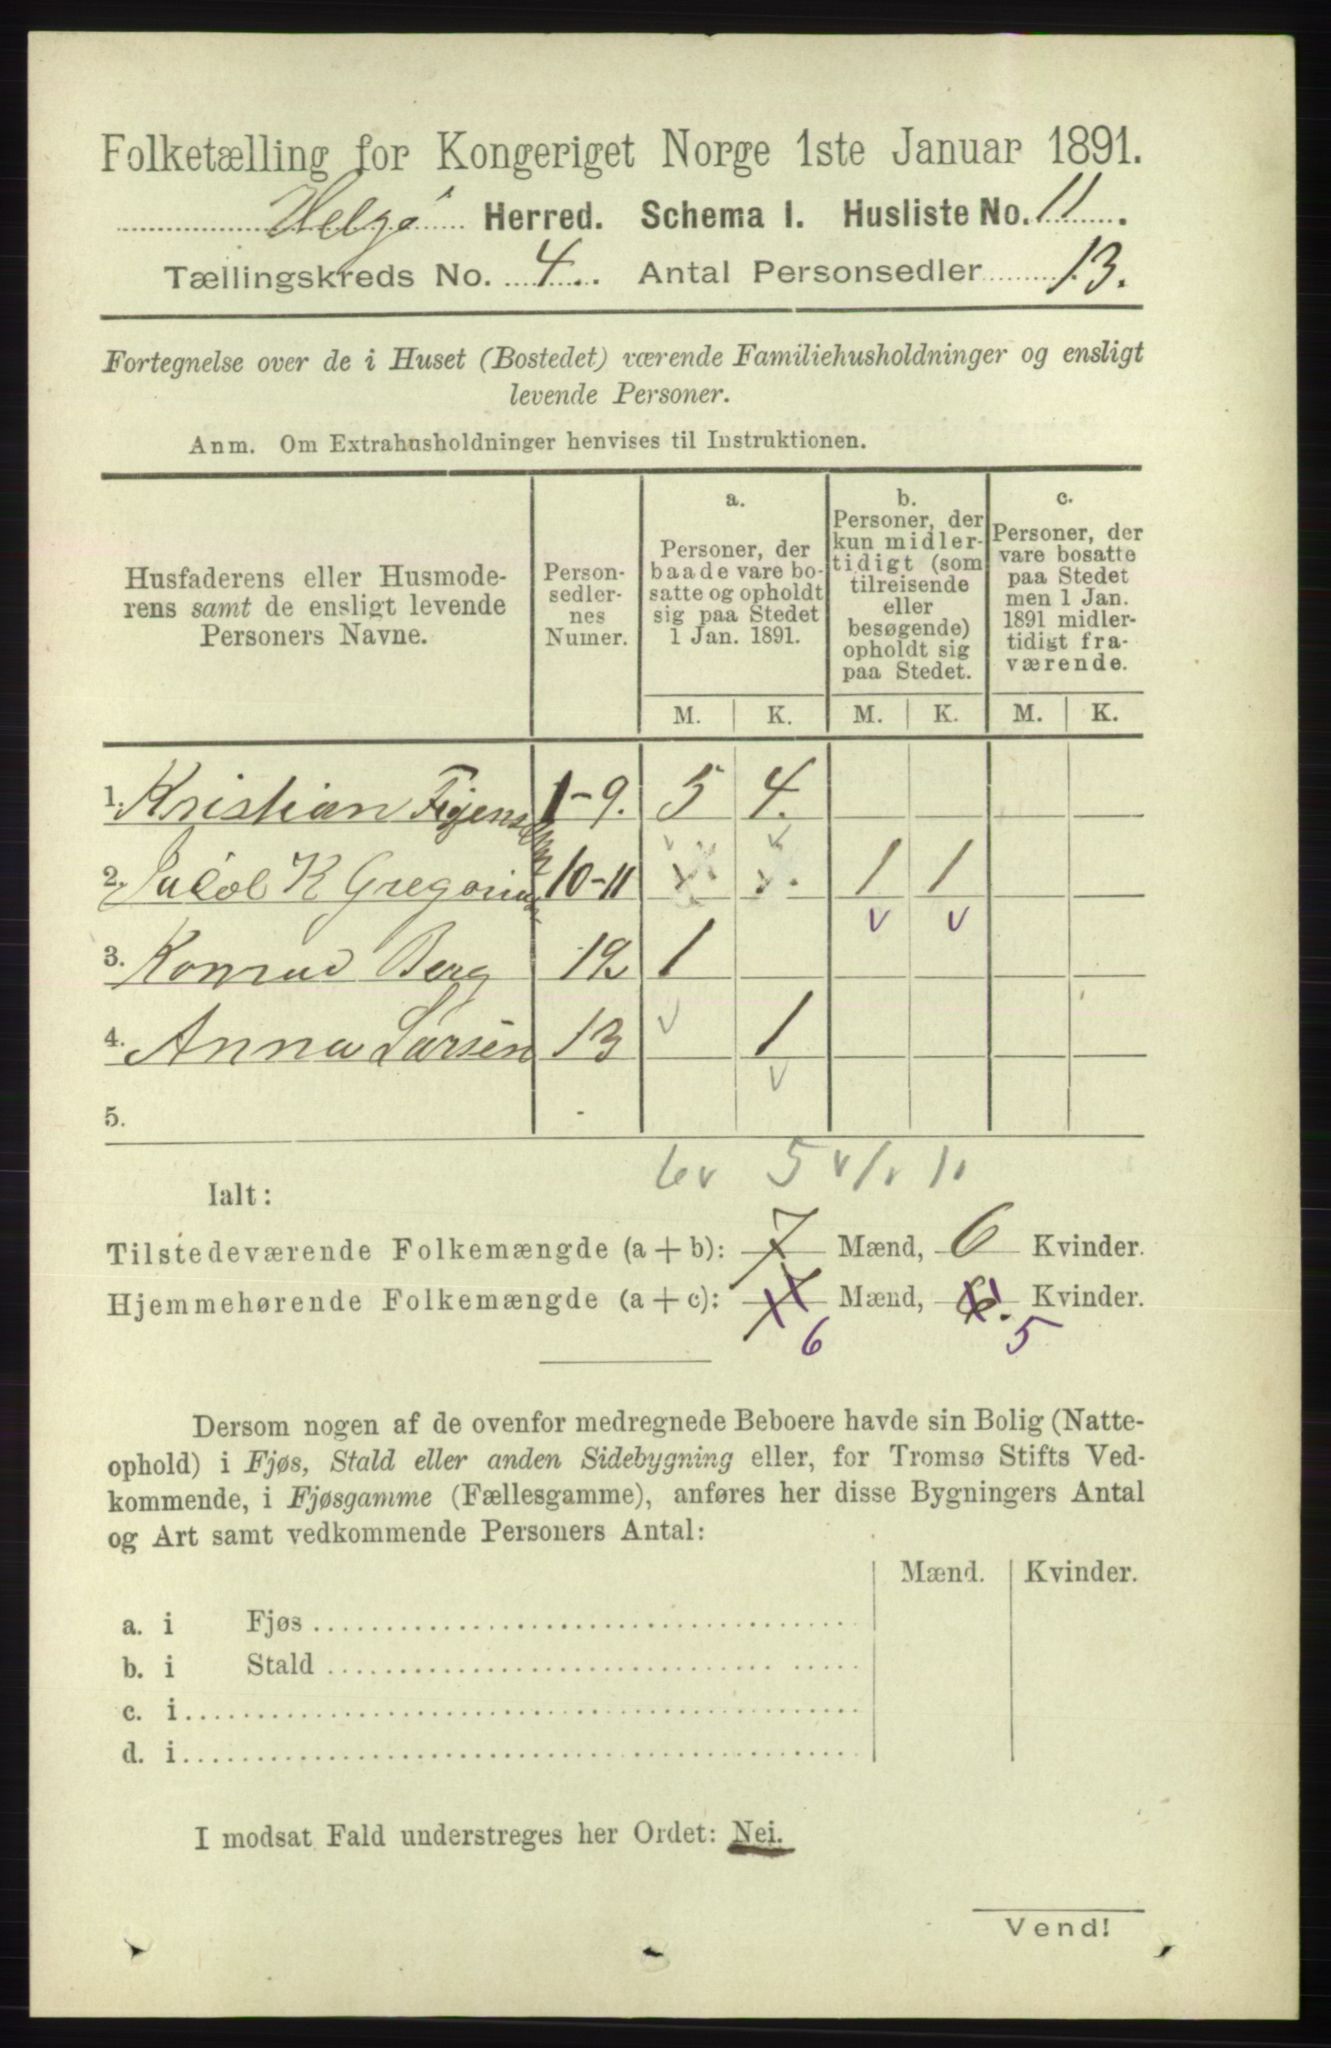 Folketælling for Kongeriget Norge 1ste Januar 1891.
Helgø Herred. Schema I. Husliste No. 11.
Tællingskreds No. 4. Antal Personsedler 13.
Fortegnelse over de i Huset (Bostedet) værende Familiehusholdninger og ensligt
levende Personer.
Anm. Om Extrahusholdninger henvises til Instruktionen.
Husfaderens eller Husmode-
rens samt de ensligt levende
Personers Navne.
Person-
sedler-
nes
Numer.
a.
Personer, der
baade vare bo-
satte og opholdt
sig paa Stedet
1 Jan. 1891.
b.
Personer, der
kun midler-
tidigt (som
tilreisende
eller
besøgende)
opholdt sig
paa Stedet.
c.
Personer, der
vare bosatte
paa Stedet
men 1 Jan.
1891 midler-
tidigt fra-
værende.
M. K. M. K. M. K.
1. Kristian 1-9. 5 4.
2. K 10-11 x. x. 1 1
v v
3. Konrad Berg 12 1
4. Anna Larsen 13 v 1
v
5. -
6v 5v 1v 1v
Ialt:
Tilstedeværende Folkemængde (a + b): 7 Mænd, 6 Kvinder.
Hjemmehørende Folkemængde (a + c): 7 Mænd, 6. Kvinder.
6 5
Dersom nogen af de ovenfor medregnede Beboere havde sin Bolig (Natte-
ophold) i Fjøs, Stald eller anden Sidebygning eller, for Tromsø Stifts Ved-
kommende, i Fjøsgamme (Fællesgamme), anføres her disse Bygningers Antal
og Art samt vedkommende Personers Antal:
Mænd. Kvinder.
a. i Fjøs
b. i Stald
c. i
d. i
I modsat Fald understreges her Ordet: Nei.
Vend!